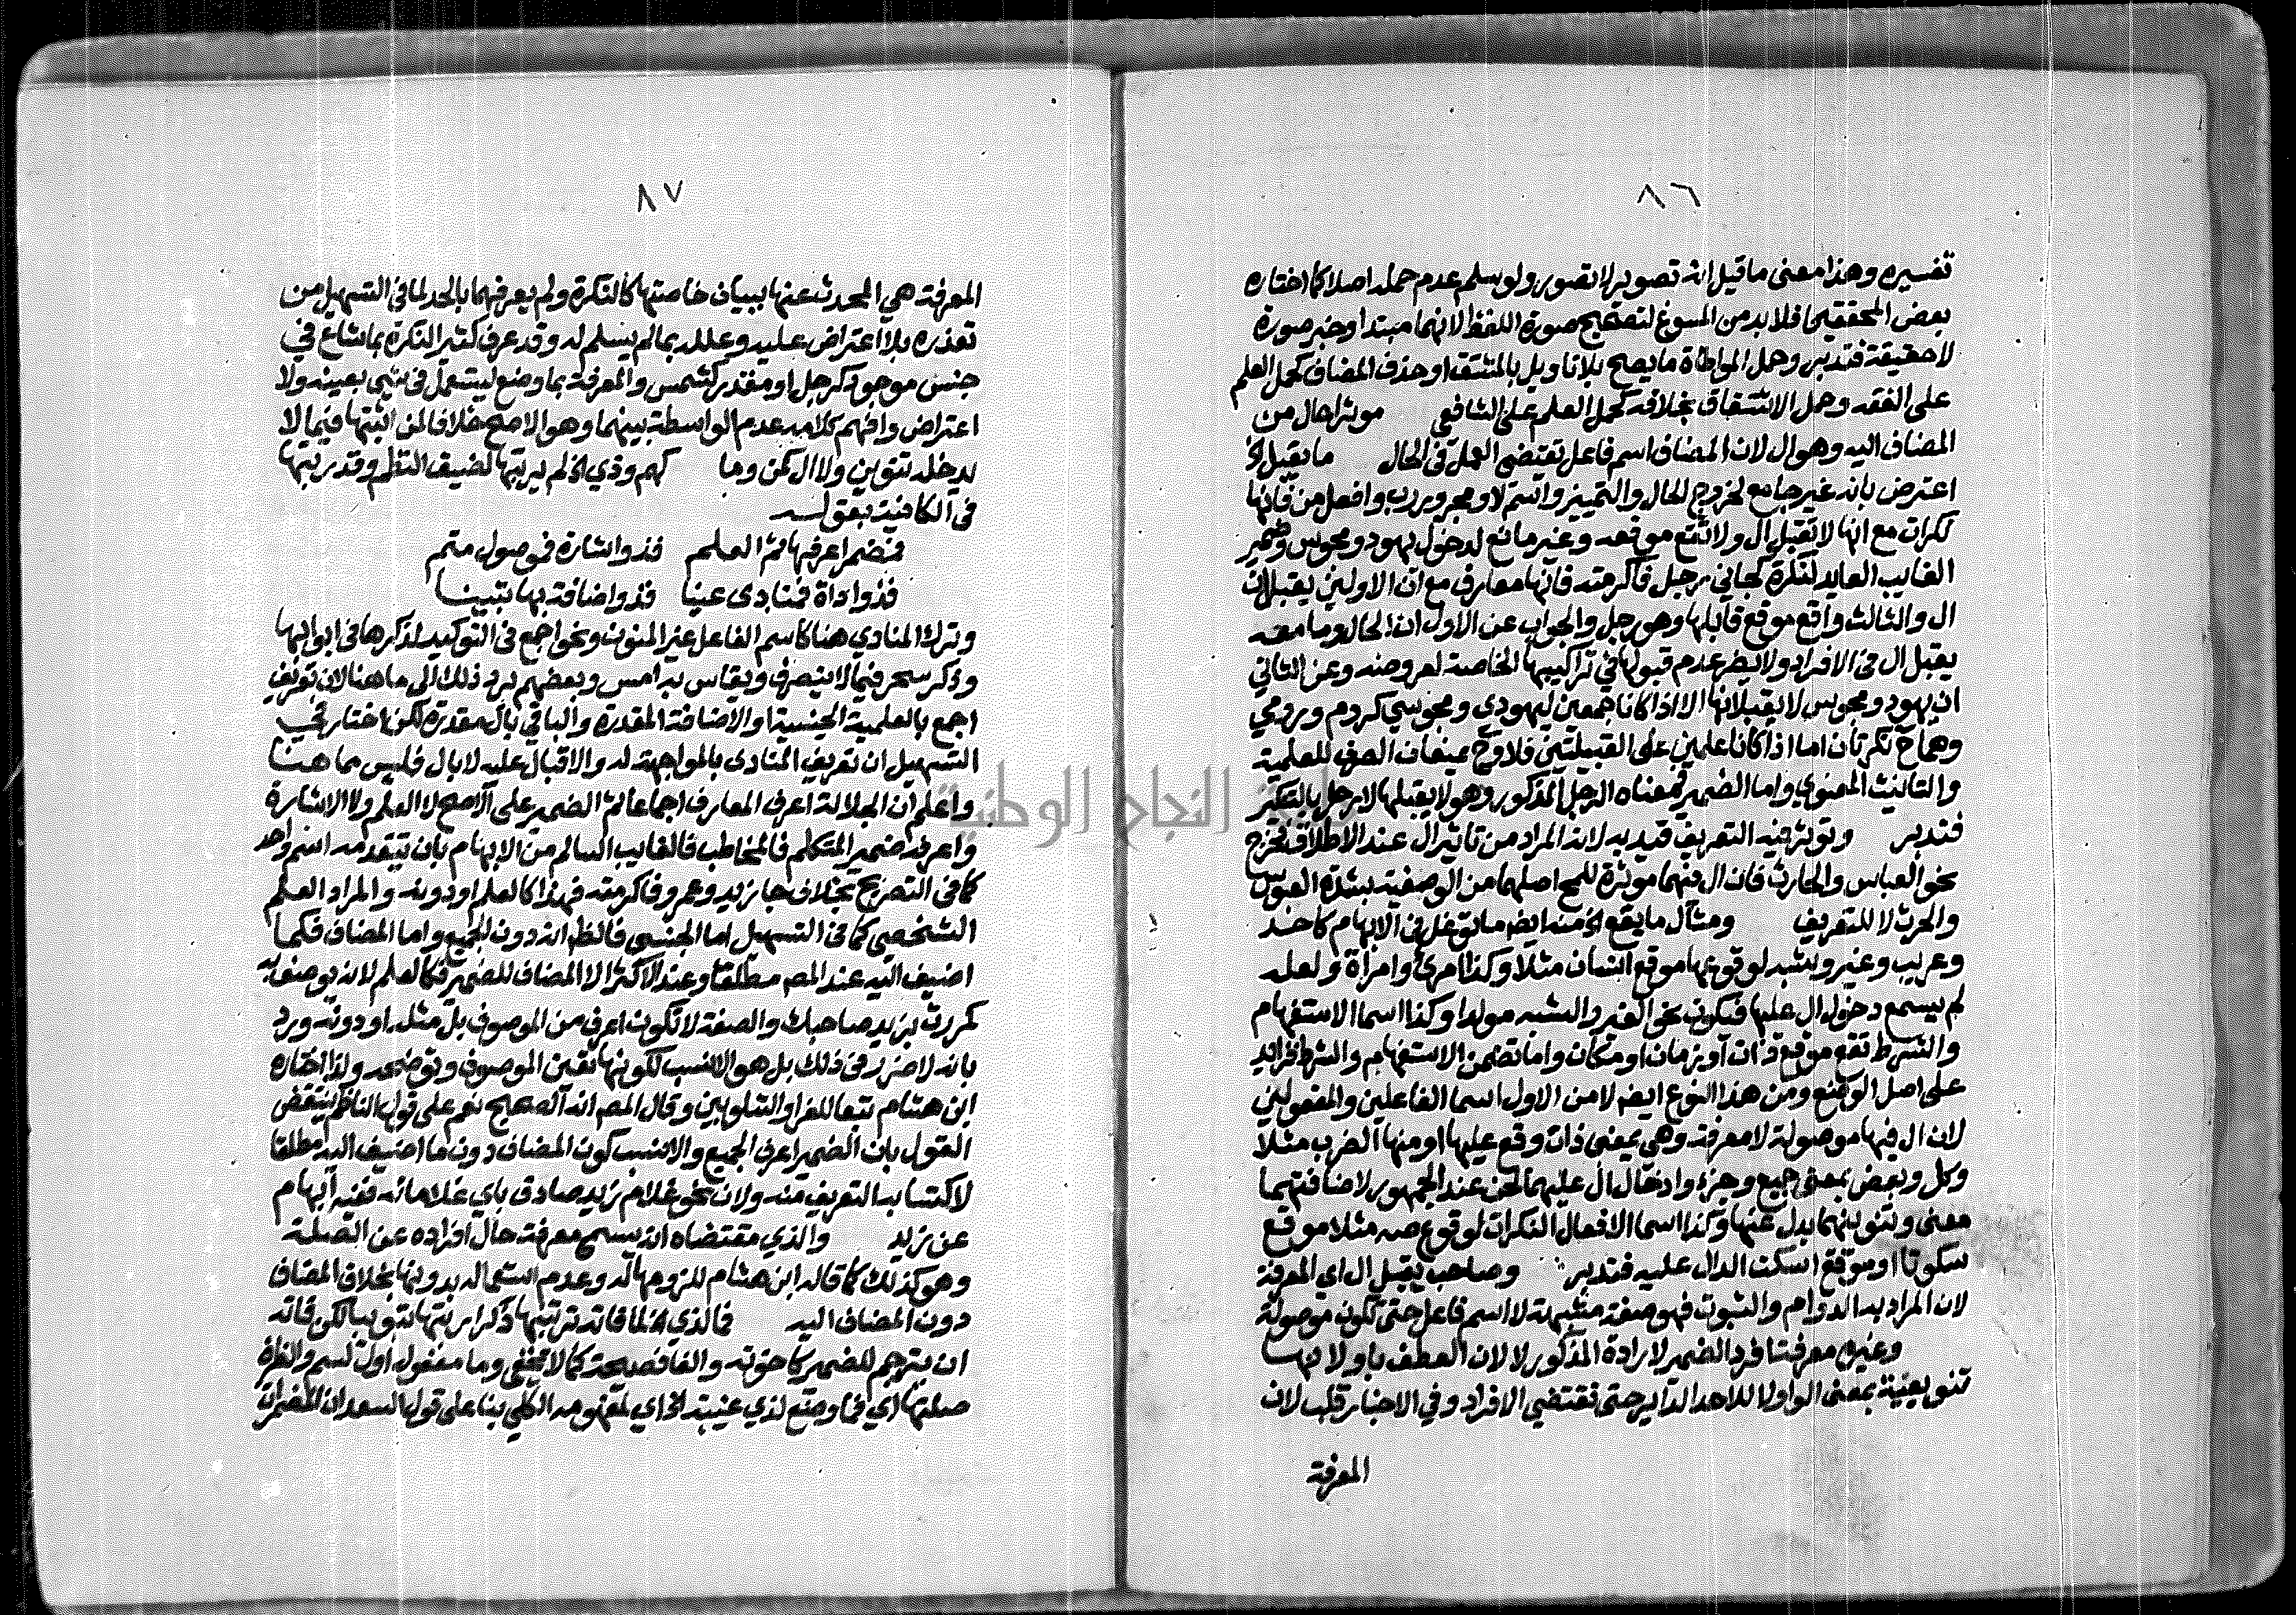 ٨٦
تفسيره وهذا معنى ما قيل انه تصوير لا تصور ولو سلم عدم حمله اصلا كما اختاره
بعض المحققين فلا بد من المسوغ لتصحيح صورة اللفظ لانهما مبتدا وخبر صورة
لا حقيقة فتدبر وحمل المواطاة ما يصح بلا تاويل بالمشتق او حذف المضاف كحمل العلم
على الفقه وحمل الاشتقاق بخلافه كحمل العلم على الشافعي موثرا حال من
المضاف اليه وهو ال لان المضاف اسم فاعل تقتضى العمل في الحال ما يقبل الخ
اعترض بانه غير جامع لخروج الحال والتمييز واسم لا ومجرور رب وافعل من فانها
نكرات مع انها لا تقبل ال ولا تقع موقعه وغير مانع لدخول يهود ومجوس وضمير
الغايب العايد لنكرة كجاني رجل فاكرمته فانها معارف مع ان الاولين يقبلان
ال والثالث واقع موقع قابلها وهو رجل والجواب عن الاول ان الحال وما معه
يقبل ال في الافراد ولا يضر عدم قبولها في تراكيبها الخاصة لعروضه وعن الثاني
ان يهود ومجوس لا يقبلانها الا اذا كانا جمعين ليهودي ومجوسي كروم ورومي
وهما ح نكرتان اما اذا كانا علمين على القبيلتين فلا وح يمنعان الصرف للعلمية
والتانيث المعنوي واما الضمير فمعناه الرجل المذكور وهو لا يقبلها لا رجل بالتنكير
فتدبر وتوثر فيه التعريف قيد به لانه المراد من تاثير ال عند الاطلاق فخرج
نحو العباس والحارث فان ال فيهما موثرة للمح اصلهما من الوصفية بشدة العبوس
والحرث لا للتعريف ومثال ما يقع الخ منه ايضا ما توغل في الابهام كاحد
وعريب وغير وشبه لوقوعها موقع انسان مثلا وكذا امرئ وامراة ولعله
لم يسمع دخول ال عليها فيكون نحو الغير والشبه مولدا وكذا اسما الاستفهام
والشرط تقع موقع ذات او زمان او مكان واما تضمن الاستفهام والشرط فزائد
على اصل الوضع ومن هذا النوع ايضا لا من الاول اسما الفاعلين والمفعولين
لان ال فيها موصولة لا معرفة وهي بمعنى ذات وقع عليها او منها الضرب مثلا
وكل وبعض بمعنى جميع وجزء وادخال ال عليهما لحن عند الجمهور لاضافتهما
معنى وتنوينهما بدل عنها وكذا اسما الافعال النكرات لوقوع صه مثلا موقع
سكوتا او موقع اسكت الدال عليه فتدبر وصاحب يقبل ال اي المعرفة
لان المراد به الدوام والثبوت فهو صفة مشبهة لا اسم فاعل حتى تكون موصولة
وغيره معرفة افرد الضمير لارادة المذكور لا لان العطف باو لانها
تنويعية بمعنى الواو لا للاحد الداير حتى تقتضي الافراد وفي الاخبار قلب لان
المعرفة
٨٧
المعرفة هي المحدث عنها ببيان خاصتها كالنكرة ولم يعرفهما بالحد لما في التسهيل من
تعذره بلا اعتراض عليه وعلله بما لم يسلم له وقد عرف كثير النكرة بما شاع في
جنس موجود كرجل او مقدر كشمس والمعرفة بما وضع ليستعمل في شي بعينه ولا
اعتراض وافهم كلامه عدم الواسطة بينهما وهو الاصح خلافا لمن اثبتها فيما لا
يدخله تنوين ولا ال كمن وما كهم وذي الخ لم يرتبها لضيق النظم وقد رتبها
في الكافية بقوله
فمضمر اعرفها ثم العلم فذو اشارة فموصول متم
فذو اداة فمنادى عينا فذو اضافة بها تبينا
وترك المنادي هنا كاسم الفاعل غير المنون ونحو اجمع في التوكيد لذكرها في ابوابها
وذكر سحر فيما لا ينصرف ويقاس به امس وبعضهم يرد ذلك الى ما هنا لان تعريف
اجمع بالعلمية الجنسية او الاضافة المقدرة والباقي بال مقدرة لكن اختار في
التسهيل ان تعريف المنادى بالمواجهة له والاقبال عليه لا بال فليس مما هنا
واعلم ان الجلالة اعرف المعارف اجماعا ثم الضمير على الاصح لا العلم ولا الاشارة
واعرفه ضمير المتكلم فالمخاطب فالغايب السالم من الابهام بان يتقدمه اسم واحد
كما في التصريح بخلاف جا زيد وعمرو فاكرمته فهذا كالعلم او دونه والمراد العلم
الشخصي كما في التسهيل اما الجنسي فالظ انه دون الجميع واما المضاف فكما
اضيف اليه عند المص مطلقا وعند الاكثر الا المضاف للضمير فكالعلم لانه يوصف به
كمررت بزيد صاحبك والصفة لا تكون اعرف من الموصوف بل مثله او دونه ورد
بانه لا ضرر في ذلك بل هو الانسب لكونها تعين الموصوف وتوضحه ولذا اختاره
ابن هشام تبعا للفرا والشلوبين وقال المص انه الصحيح نعم على قول الناظم ينتقض
القول بان الضمير اعرف الجميع والانسب كون المضاف دون ما اضيف اليه مطلقا
لاكتسابه التعريف منه ولان نحو غلام زيد صادق باي غلمانه ففيه ابهام
عن زيد والذي مقتضاه انه يسمى معرفة حال افراده عن الصلة
وهو كذلك كما قاله ابن هشام للزومها له وعدم استعماله بدونها بخلاف المضاف
دون المضاف اليه فما لذي الخ لما فاته ترتيبها ذكرا رتبها تبويبا لكن فاته
ان يترجم للضمير كاخوته والفا فصيحة كما لا يخفى وما مفعول اول لسم والظرف
صلتها اي فما وضع لذي غيبة الخ اي لمفهومه الكلي بنا على قول السعد ان المضمرات